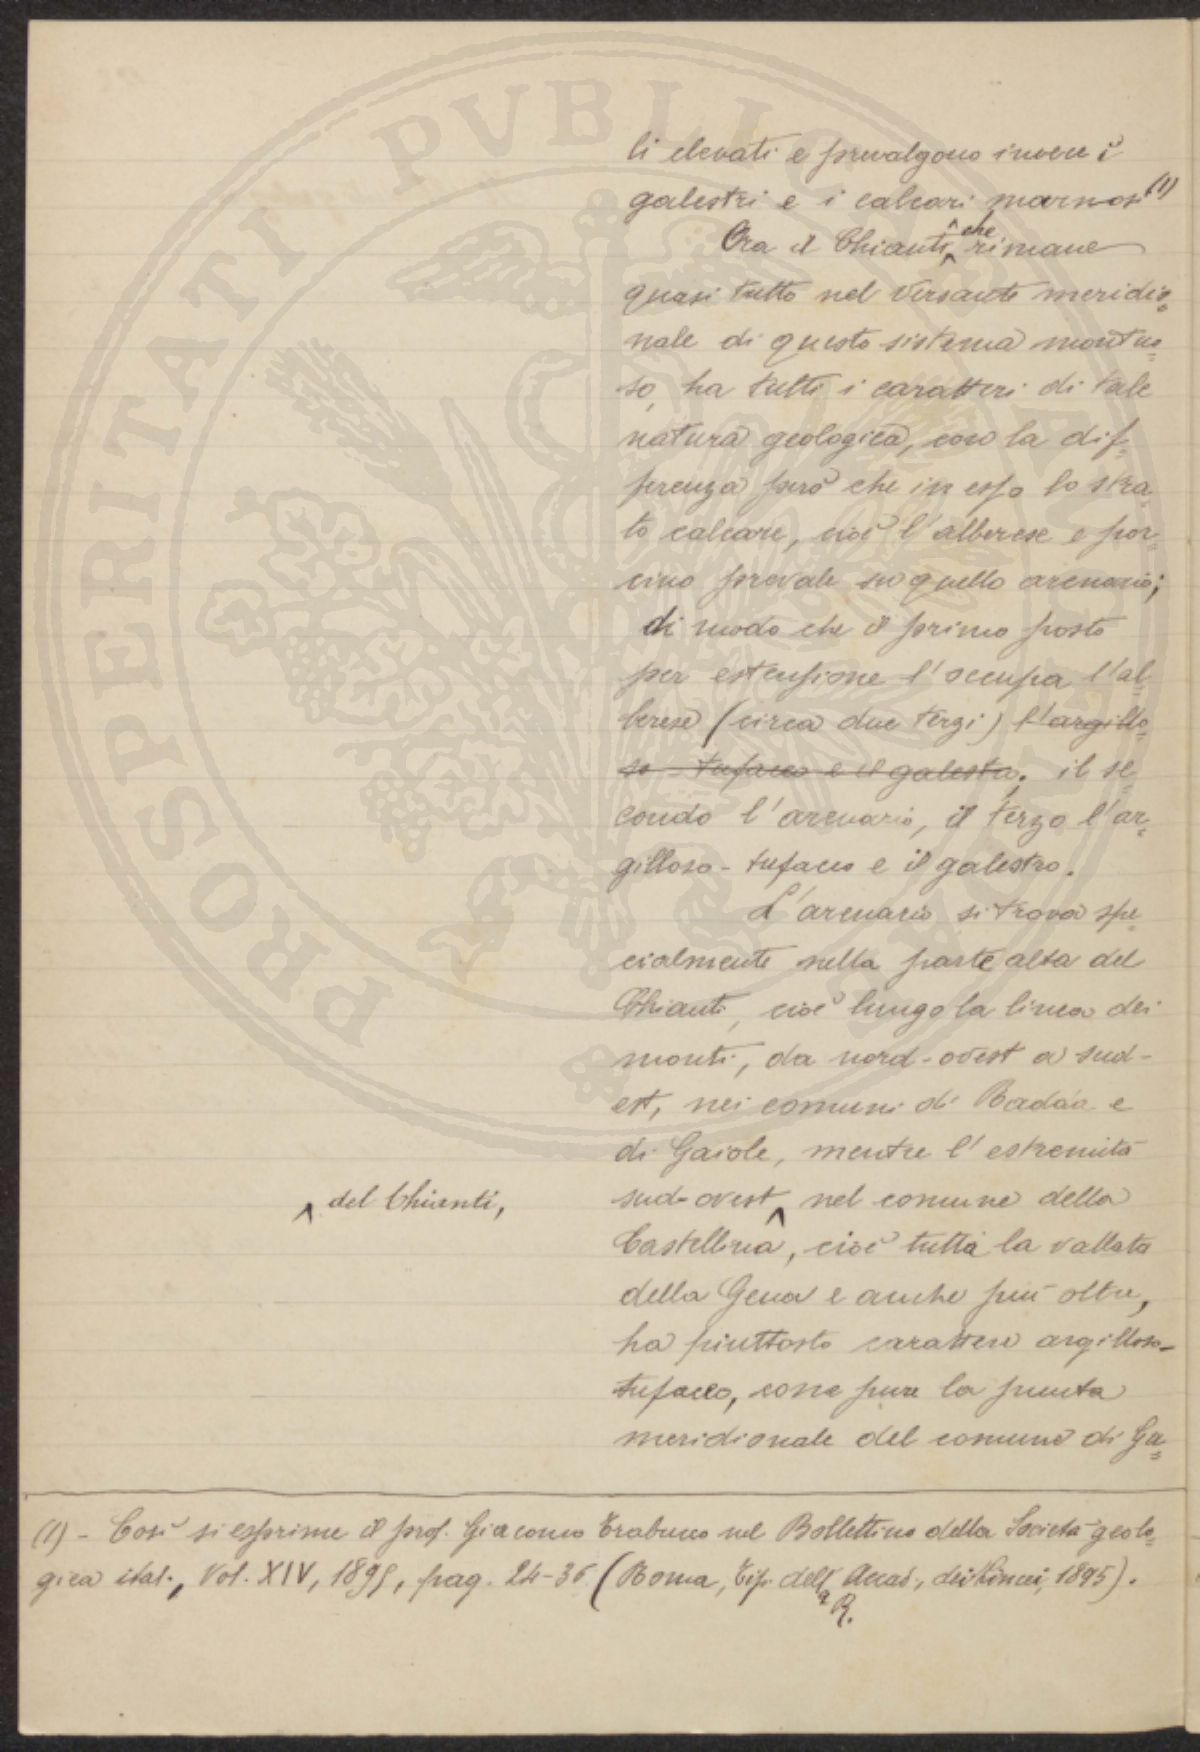 li elevati e prevalgono invece i
galestri e i calcari marnosi (1)
Ora il Chianti, che rimane
quasi tutto nel versante meridio=
nale di questo sistema montuo=
so, ha tutti i caratteri di tale
natura geologica, con la dif=
ferenza però che in esso lo stra=
to calcare, cioè l'alberese e por=
cino prevale su quello arenario;
di modo che il primo posto
per estensione l'occupa l'al=
berese (circa due terzi) l'argillo=
so-tufaceo e il galestro; il se=
condo l'arenario, il terzo l'ar=
gilloso-tufaceo e il galestro.
L'arenario si trova spe=
cialmente nella parte alta del
Chianti, cioè lungo la linea dei
monti, da nord-ovest a sud-
est, nei comuni di Radda e
di Gaiole, mentre l'estremità
sud-ovest del Chianti, nel comune della
Castellina, cioè tutta la vallata
della Gena e anche più oltre,
ha piuttosto carattere argilloso-
tufaceo, come pure la punta
meridionale del comune di Ga=
(1) - Così si esprime il prof. Giacomo Trabucco nel Bollettino della Società geolo=
gica ital., Vol. XIV, 1895, pag. 24-36 (Roma, Tip. della R. Accad. dei Lincei, 1895).
PROSPERITATI PVBLICAE